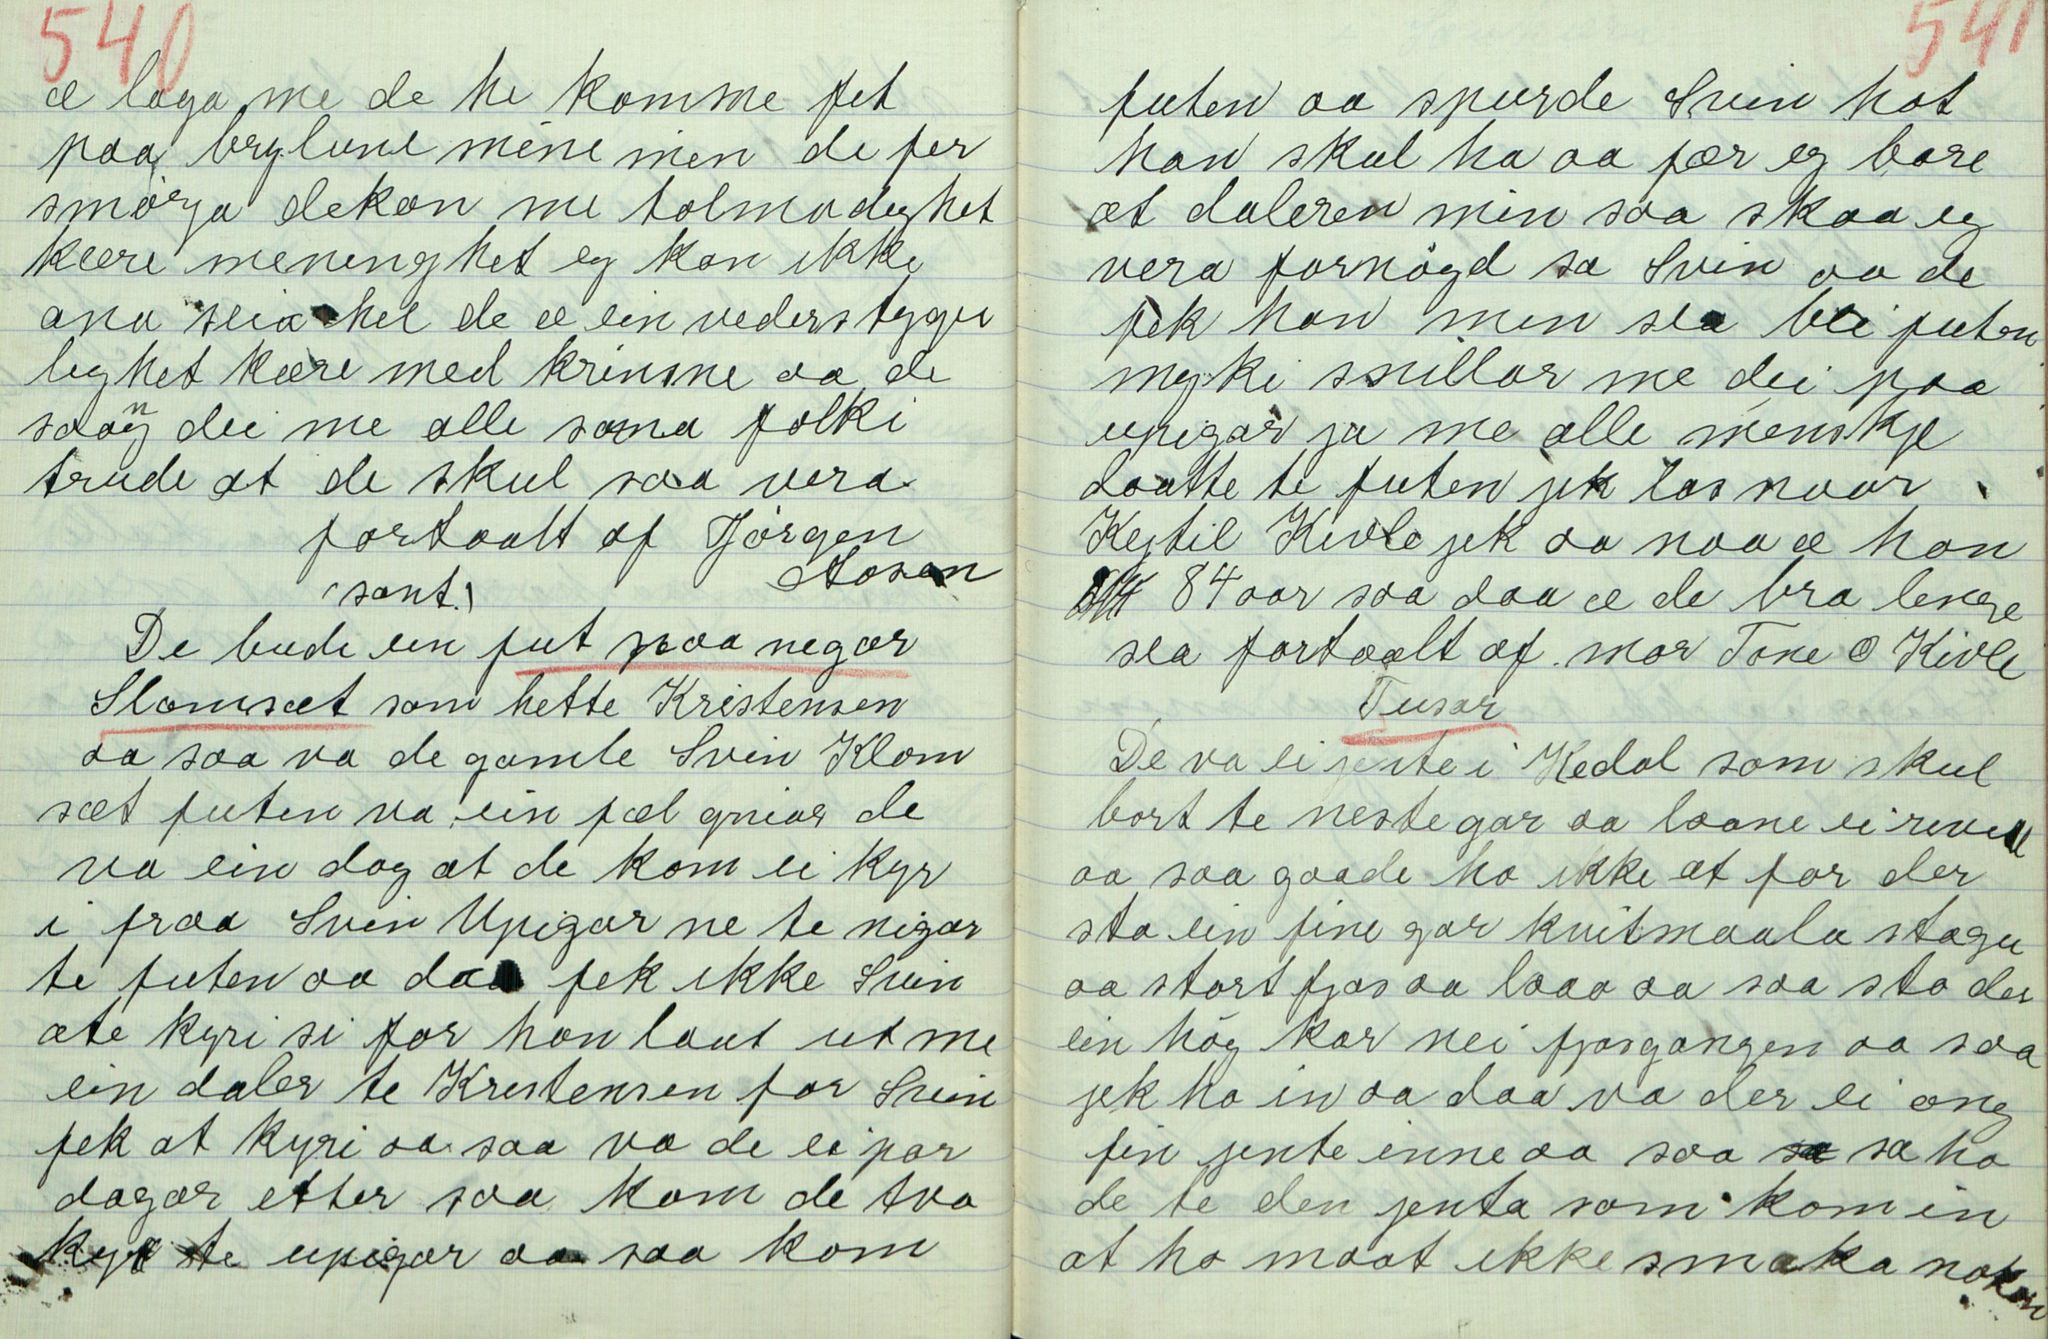 540
æ laga me de he komme fet
paa brylune mine men de fer
smörja dekan me tolmodeghet
kære meneng het eg kan ikke
ana seia hel de æ ein vederstyggu
leghet kære med krinsne aa de
saang dei me alle sama folki
trude at de skul saa vera
fortaalt af Jörgen
Aosen
(sant.)
De bude ein fut paa negar
Slomsæt som hette Kristensen
aa saa va de gamle Svin Klom
sæt futen va ein fæl gniar de
va ein dag at de kom ei kyr
i fraa Svin Upigar ne te nigar
te futen aa daa fek ikke Svin
ate kyri si før han laut ut me
ein daler te Krestensen for Svin
fek at kyri aa saa va de ei par
dagar etter saa kom de tvo
kyr te upigar aa saa kom
541
futen aa spurde Svin hot
han skul ha aa fær eg bare
at daleren min saa skaa eg
vera fornögd sa Svin aa de
fek han men sea blei futen
myki snillar me dei paa
upigar ja me alle menskje
daatte te futen jek las naar
Kjtil Kivle jek aa naa æ han
84 aar saa daa æ de bra lengre
sea fortaalt af mor Tone O Kivle
Tusar
De va ei jente i Kedal som skul
bort te neste gar aa laane ei
aa saa gaade ho ikke at for der
sto ein fine gar kvitmaala stagu
aa stort fjos aa laao aa saa sto der
ein hög kar nei fjosgangen aa saa
jek ho in aa daa va der ei ong
fin jente inne aa saa sa ho
de te den jenta som kom in
at ho maat ikke smaka noken